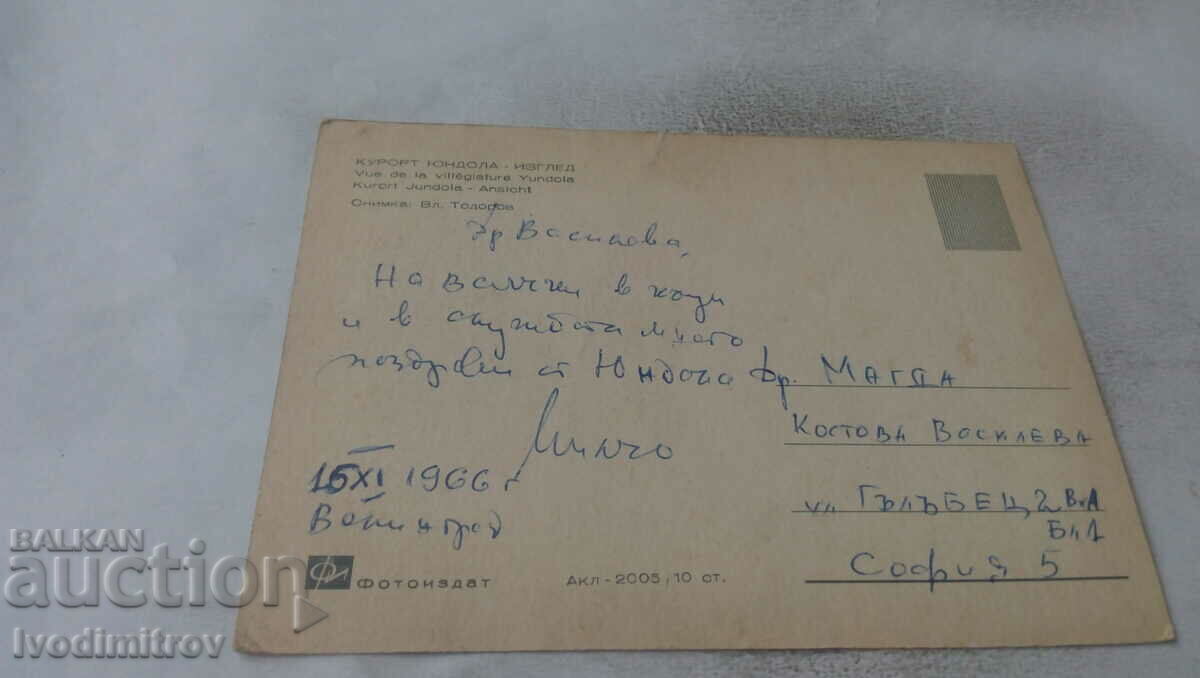 КУРОРТ ЮНДОЛА - ИЗГЛЕД
Vue de la villégiature Yundola
Kurort Jundola - Ansicht
Снимка: Вл. Тодоров
Др Василева,
На всички в къщи
и в службата много
поздрави от Юндола
Минчо
15 XI 1966 г
Велинград
Др. МАГДА
КОСТОВА ВАСИЛЕВА
ул ГЪЛЪБЕЦ 2 Вх А
Бл 1
СОФИЯ 5
ФОТОИЗДАТ
Акл - 2005, 10 ст.
BALKAN
auction
Ivodimitrov